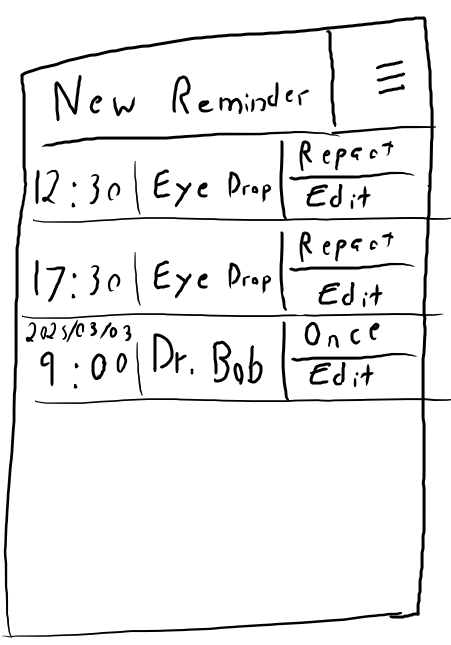 New Reminder
12:30 Eye Drop Repeat
Edit
17:30 Eye Drop Repeat
Edit
2025/03/03
9:00 Dr. Bob Once
Edit